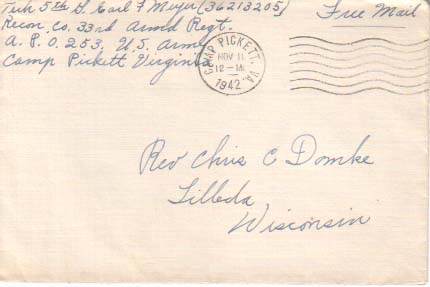 Tech 5th G. Earl F Meyer (36213205)
Recon. Co. 33rd Armd Regt.
A. P. O. 253, U.S. Army
Camp Pickett Virginia
Free Mail
CAMP PICKETT, VA.
NOV 11
12 - M
1942
Rev Chris C Domke
Tilleda
Wisconsin